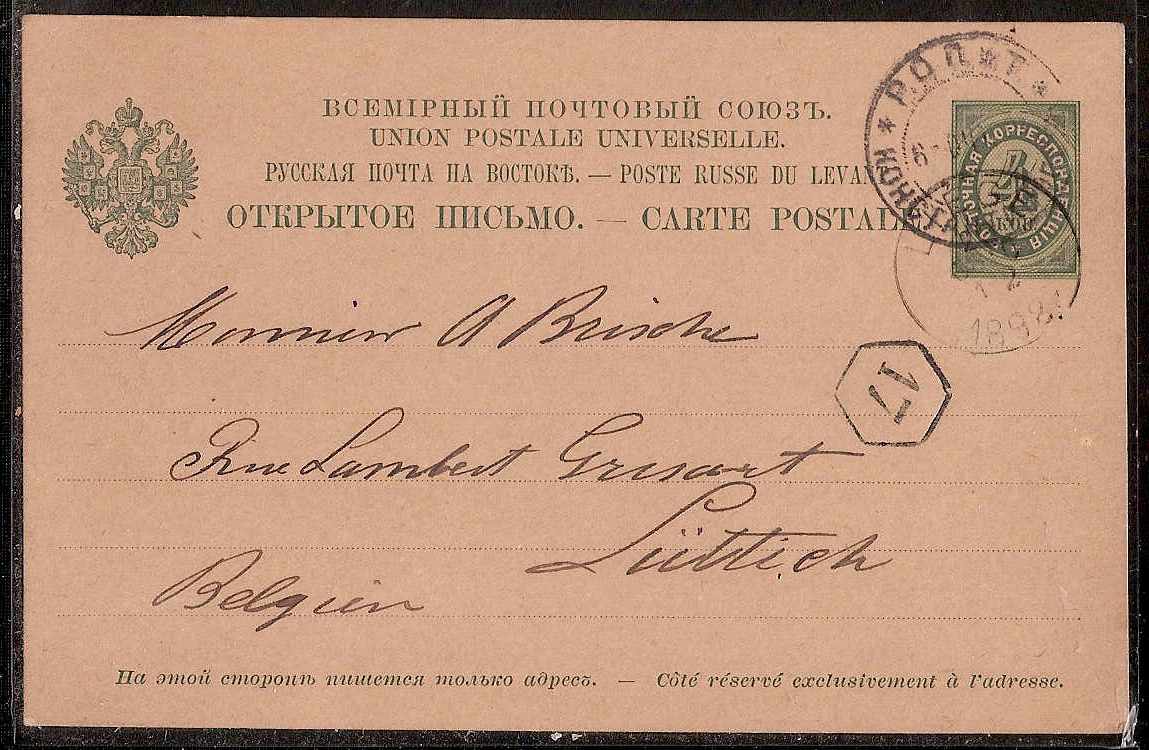 ВСЕМІРНЫЙ ПОЧТОВЫЙ СОЮЗЪ.
UNION POSTALE UNIVERSELLE.
РУССКАЯ ПОЧТА НА ВОСТОКѢ. — POSTE RUSSE DU LEVAN
ОТКРЫТОЕ ПИСЬМО. — CARTE POSTALE
КОРРЕСПОНДЕНЦІЯ
4
КОП
РОПиТ
1898
Monsieur A Brische
17
Rue Lambert Grisart
Lüttich
Belgien
На этой сторонѣ пишется только адресъ. — Côté réservé exclusivement à l'adresse.